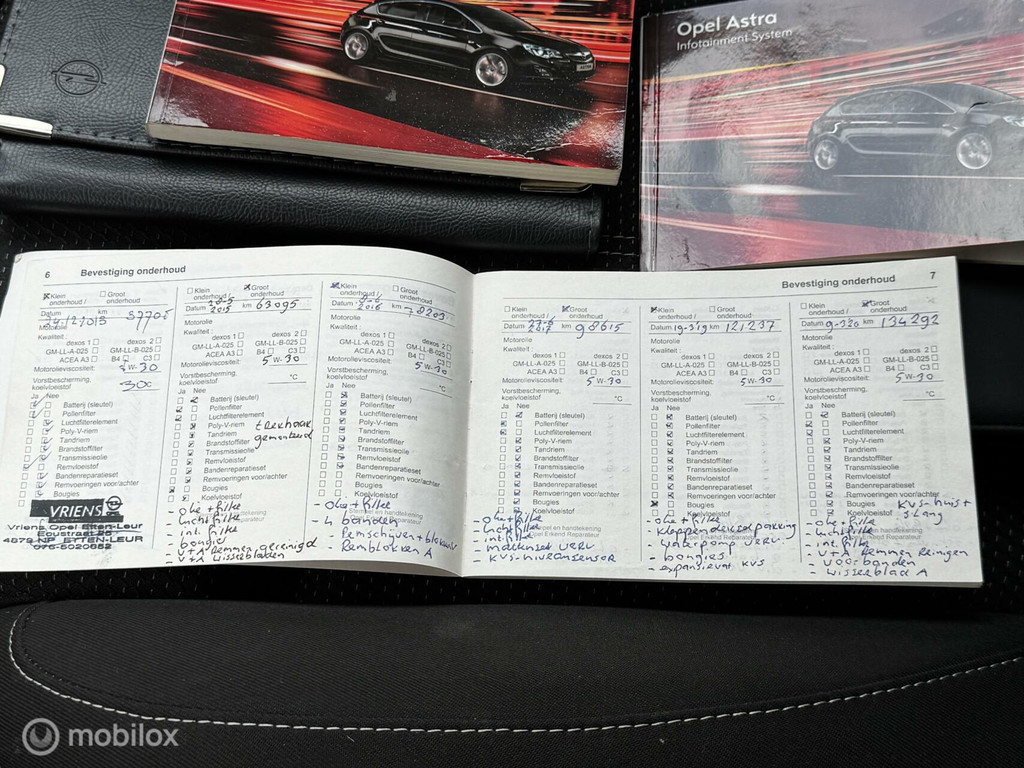 Opel Astra
Infotainment System
6 Bevestiging onderhoud
Klein onderhoud / Groot onderhoud
Datum 24.12.2013
Motorolie
Kwaliteit :
dexos 1 dexos 2
GM-LL-A-025 GM-LL-B-025
ACEA A3 B4 C3
Motorolieviscositeit: 5W-30
Vorstbescherming,
koelvloeistof -30C
Ja Nee
Batterij (sleutel)
Pollenfilter
Luchtfilterelement
Poly-V-riem
Tandriem
Brandstoffilter
Transmissieolie
Remvloeistof
Bandenreparatieset
Remvoeringen voor/achter
Bougies
VRIENS
Vriens Opel Etten-Leur
4879 NP ETTEN-LEUR
076-5020652
Klein onderhoud / Groot onderhoud
Datum 2015 km 63095
Motorolie
Kwaliteit :
dexos 1 dexos 2
GM-LL-A-025 GM-LL-B-025
ACEA A3 B4 C3
Motorolieviscositeit: 5W-30
Vorstbescherming,
koelvloeistof °C
Ja Nee
Batterij (sleutel)
Pollenfilter
Luchtfilterelement
Poly-V-riem
Tandriem
Brandstoffilter
Transmissieolie
Remvloeistof
Bandenreparatieset
Remvoeringen voor/achter
Bougies
Koelvloeistof
trekhaak
gemonteerd
- olie + filter
- luchtfilter
- int. filter
- bougie
- V+A remmen gereinigd
- V+A wisserbladen
Klein onderhoud / Groot onderhoud
Datum 2016 km 78203
Motorolie
Kwaliteit :
dexos 1 dexos 2
GM-LL-A-025 GM-LL-B-025
ACEA A3 B4 C3
Motorolieviscositeit: 5W-30
Vorstbescherming,
koelvloeistof °C
Ja Nee
Batterij (sleutel)
Pollenfilter
Luchtfilterelement
Poly-V-riem
Tandriem
Brandstoffilter
Transmissieolie
Remvloeistof
Bandenreparatieset
Remvoeringen voor/achter
Bougies
Koelvloeistof
- olie + filter
- 4 banden
- Remschijven + blokken V
- Remblokken A
Bevestiging onderhoud 7
Klein onderhoud / Groot onderhoud
Datum 2017 km 98615
Motorolie
Kwaliteit :
dexos 1 dexos 2
GM-LL-A-025 GM-LL-B-025
ACEA A3 B4 C3
Motorolieviscositeit: 5W-30
Vorstbescherming,
koelvloeistof °C
Ja Nee
Batterij (sleutel)
Pollenfilter
Luchtfilterelement
Poly-V-riem
Tandriem
Brandstoffilter
Transmissieolie
Remvloeistof
Bandenreparatieset
Remvoeringen voor/achter
Bougies
Koelvloeistof
- olie + filter
- luchtfilter
- int. filter
- mattenset verv.
- KVS-niveausensor
Klein onderhoud / Groot onderhoud
Datum 19-3-19 km 121237
Motorolie
Kwaliteit :
dexos 1 dexos 2
GM-LL-A-025 GM-LL-B-025
ACEA A3 B4 C3
Motorolieviscositeit: 5W-30
Vorstbescherming,
koelvloeistof °C
Ja Nee
Batterij (sleutel)
Pollenfilter
Luchtfilterelement
Poly-V-riem
Tandriem
Brandstoffilter
Transmissieolie
Remvloeistof
Bandenreparatieset
Remvoeringen voor/achter
Bougies
Koelvloeistof
- olie + filter
- kleppendekselpakking
- waterpomp verv.
- bougies
- expansievat KVS
Klein onderhoud / Groot onderhoud
Datum 9-3-20 km 134292
Motorolie
Kwaliteit :
dexos 1 dexos 2
GM-LL-A-025 GM-LL-B-025
ACEA A3 B4 C3
Motorolieviscositeit: 5W-30
Vorstbescherming,
koelvloeistof °C
Ja Nee
Batterij (sleutel)
Pollenfilter
Luchtfilterelement
Poly-V-riem
Tandriem
Brandstoffilter
Transmissieolie
Remvloeistof
Bandenreparatieset
Remvoeringen voor/achter
Bougies
Koelvloeistof
KVS-huis +
slang
- olie + filter
- luchtfilter
- int. filter
- V+A remmen reinigen
- voorbanden
- wisserblad A
mobilox